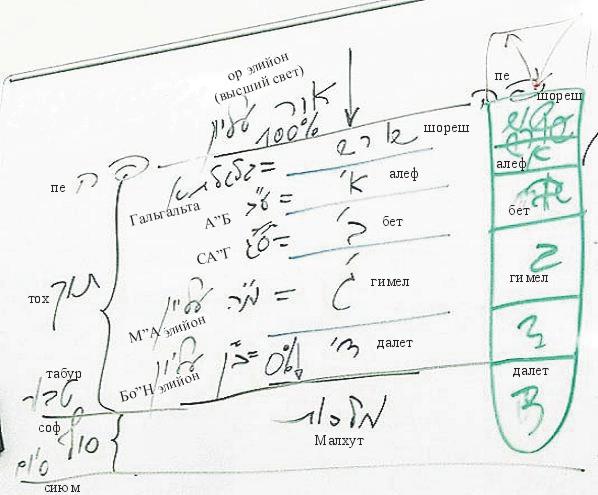 ор элийон
(высший свет)
אור עליון
100%
пе
פה
שורש
шореш
алеф
бет
гимел
далет
ג
ד
шореш
גלגלתא =
Гальгальта
пе
פה
א'
алеф
А”Б
ב'
бет
= ס"ג
СА”Г
ג'
гимел
= מ"ה עליון
М”А элийон
ד'
далет
0%
= ב"ן עליון
Бо”Н элийон
тох
תוך
табур
טבור
соф
סוף
סיום
сиюм
מלכות
Малхут